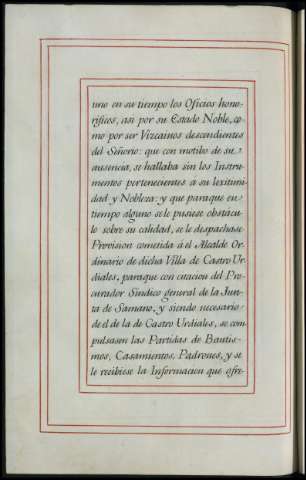 uno en su tiempo los Oficios hono-
rificos, asi por su Estado Noble, co-
mo por ser Vizcainos descendientes
del Señorio: que con motibo de su
ausencia, se hallaba sin los Instru-
mentos pertenecientes a su lexitimi-
dad y Nobleza: y que para que en
tiempo alguno se le pusiese obstacu-
lo sobre su calidad, se le despachase
Provision cometida á el Alcalde Or-
dinario de dicha Villa de Castro Ur-
diales, para que con citacion del Pro-
curador Sindico general de la Jun-
ta de Samano, y siendo necesario
de el de la de Castro Urdiales, se com-
pulsasen las Partidas de Bautis-
mos, Casamientos, Padrones, y se
le recibiese la Informacion que ofre-